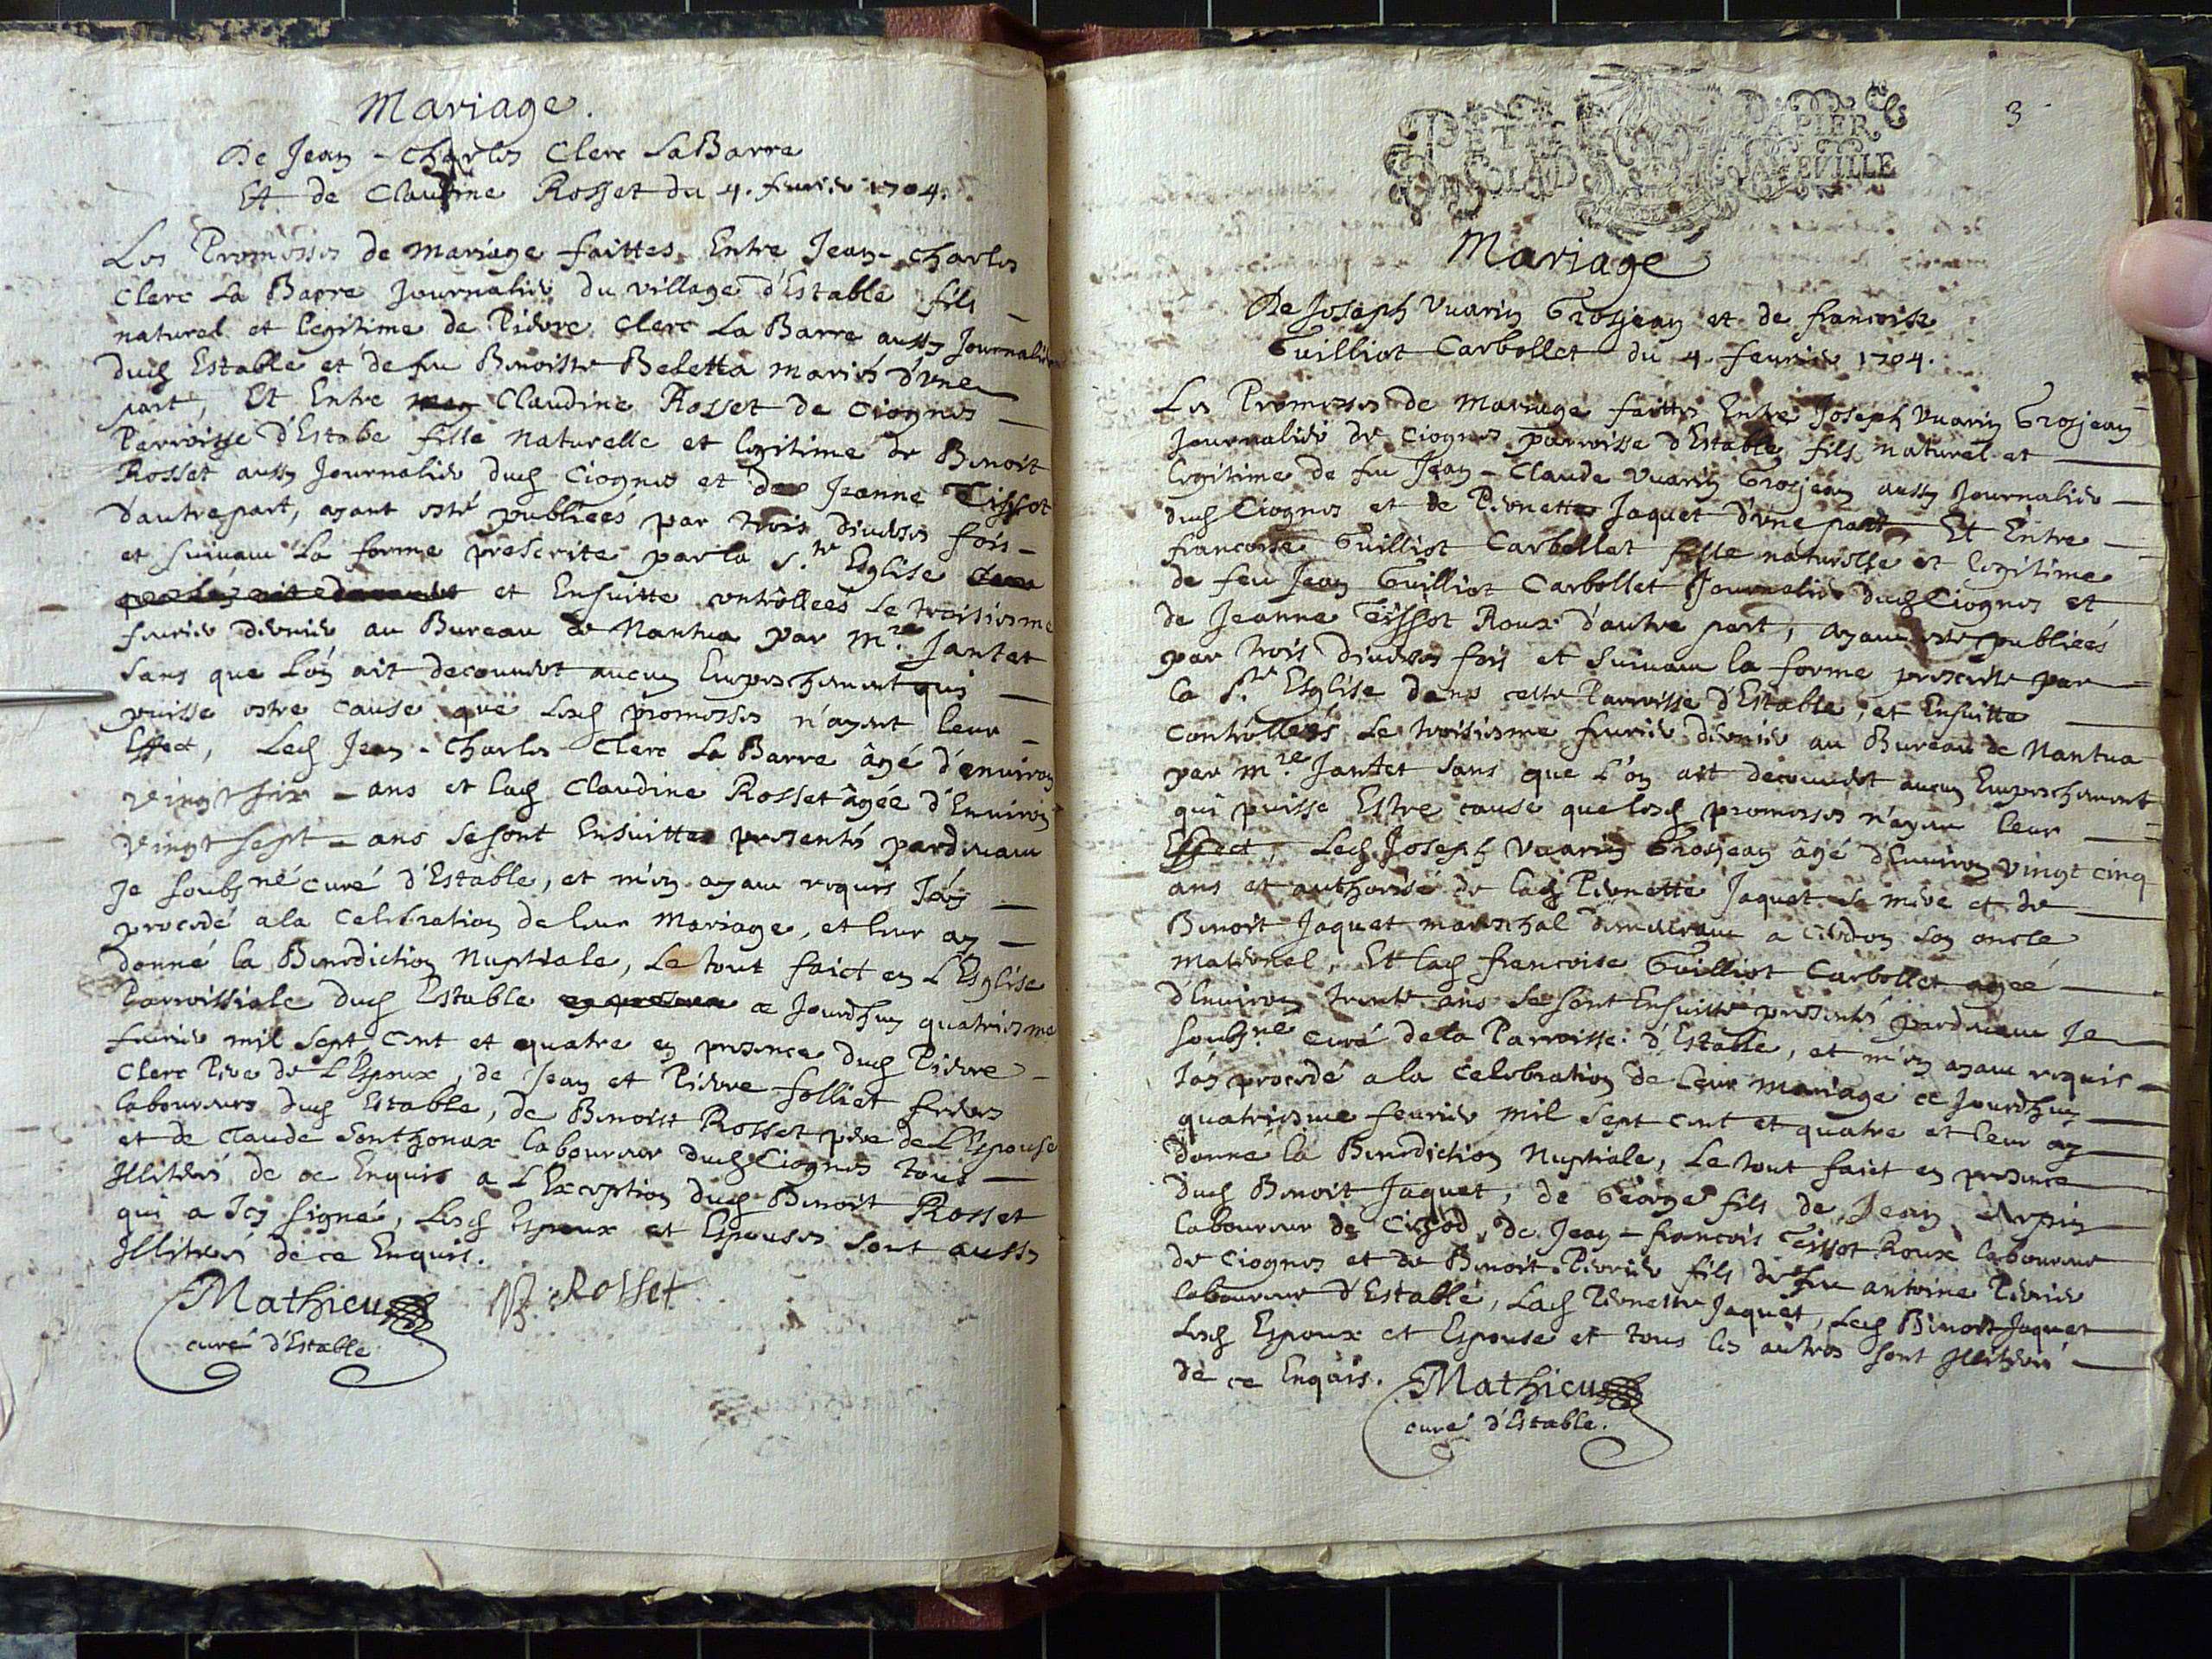 Mariage.
De Jean-Charles Clerc LaBarre
Et de Claudine Rosset du 4. feurier 1704.
Les Promesses de mariage faittes Entre Jean-Charles
Clerc La Barre Journalier du village d'Estable fils
naturel et legitime de Pierre Clerc La Barre aussy Journalier
dud Estable et de feu Benoiste Beletta mariés d'vne
part, Et Entre Claudine Rosset de Ciognes
Parroisse d'Estabe fille naturelle et legitime de Benoit
Rosset aussy Journalier dud Ciognes et de Jeanne Tissot
d'autre part, ayant esté publiées par trois diuerses fois
et suiuant La forme prescrite par la S.te Esglise
et Ensuitte controllées Le troisiesme
feurier dernier au Bureau de Nantua par m.re Jantet
sans que L'on ait decouuert aucun Empeschement qui
puisse estre cause que lesd promesses n'ayent leur
Effect, Led Jean-Charles Clerc La Barre âgé d'enuiron
vingt six ans et lad Claudine Rosset âgée d'Enuiron
vingt sept ans se sont Ensuitte presentés pardeuant
Je soubs.né curé d'Estable, et m'en ayant requis J'ay
procedé a la Celebration de leur Mariage, et leur ay
donné la Benediction Nuptiale, Le tout faict en L'Esglise
Parroissiale dud Estable ce Jourdhuy quatriesme
feurier mil sept cent et quatre en presence dud Pierre
Clerc Pere de L'Espoux, de Jean et Pierre folliet freres
laboureurs dud Estable, de Benoist Rosset pere de L'Espouse
et de Claude Sonthonax laboureur dud Ciognes tous
Illiterés de ce Enquis a L'Exception dud Benoit Rosset
qui a Icy signé, Lesd Espoux et Espouses sont aussy
Illiterés de ce Enquis.
Mathieu B. Rosset
curé d'Estable
3
PETIT PAPIER
IAGEVILLE
Mariage
De Joseph Vuarin Grosjean et de francoise
Guilliot Carbollet du 4. feurier 1704.
Les Promesses de Mariage faittes Entre Joseph Vuarin Grosjean
Journalier de Ciognes parroisse d'Estable fils naturel et
legitime de feu Jean-Claude Vuarin Grosjean aussy Journalier
dud Ciognes et de Pernette Jaquet d'vne part Et Entre
francoise Guilliot Carbollet fille naturelle et legitime
de feu Jean Guilliot Carbollet Journalier dud Ciognes et
de Jeanne Tissot Roux d'autre part, ayant esté publiées
par trois diuerses fois et suiuant la forme prescrite par
la S.te Esglise dans cette Parroisse d'Estable, et Ensuitte
Controllées Le troisiesme feurier dernier au Bureau de Nantua
par m.re Jantet sans que L'on ait decouuert aucun Empeschement
qui puisse Estre cause que lesd promesses n'ayent leur
Effect, Led Joseph Vuarin Grosjean âgé d'Enuiron vingt cinq
ans et authorisé de lad Pernette Jaquet sa mere et de
Benoit Jaquet mareschal demeurant a Cerdon son oncle
maternel, Et lad francoise Guilliot Carbollet agée
d'Enuiron trente ans se sont Ensuitte presentés pardeuant Je
soubs.né Curé de la Parroisse d'Estable, et m'en ayant requis
J'ay procedé a la Celebration de leur Mariage ce Jourdhuy
quatriesme feurier mil sept cent et quatre et leur ay
donné la Benediction Nuptiale, Le tout faict en presence
dud Benoit Jaquet, de George fils de Jean Arpin
laboureur de Cissod, de Jean-francois Tissot Roux laboureur
de Ciognes et de Benoit Perrier fils de feu antoine Perrier
laboureur d'Estable, Lad Pernette Jaquet, Led Benoit Jaquet
Lesd Espoux et Espouse et tous les autres sont Illiterés
de ce Enquis. Mathieu
curé d'Estable.